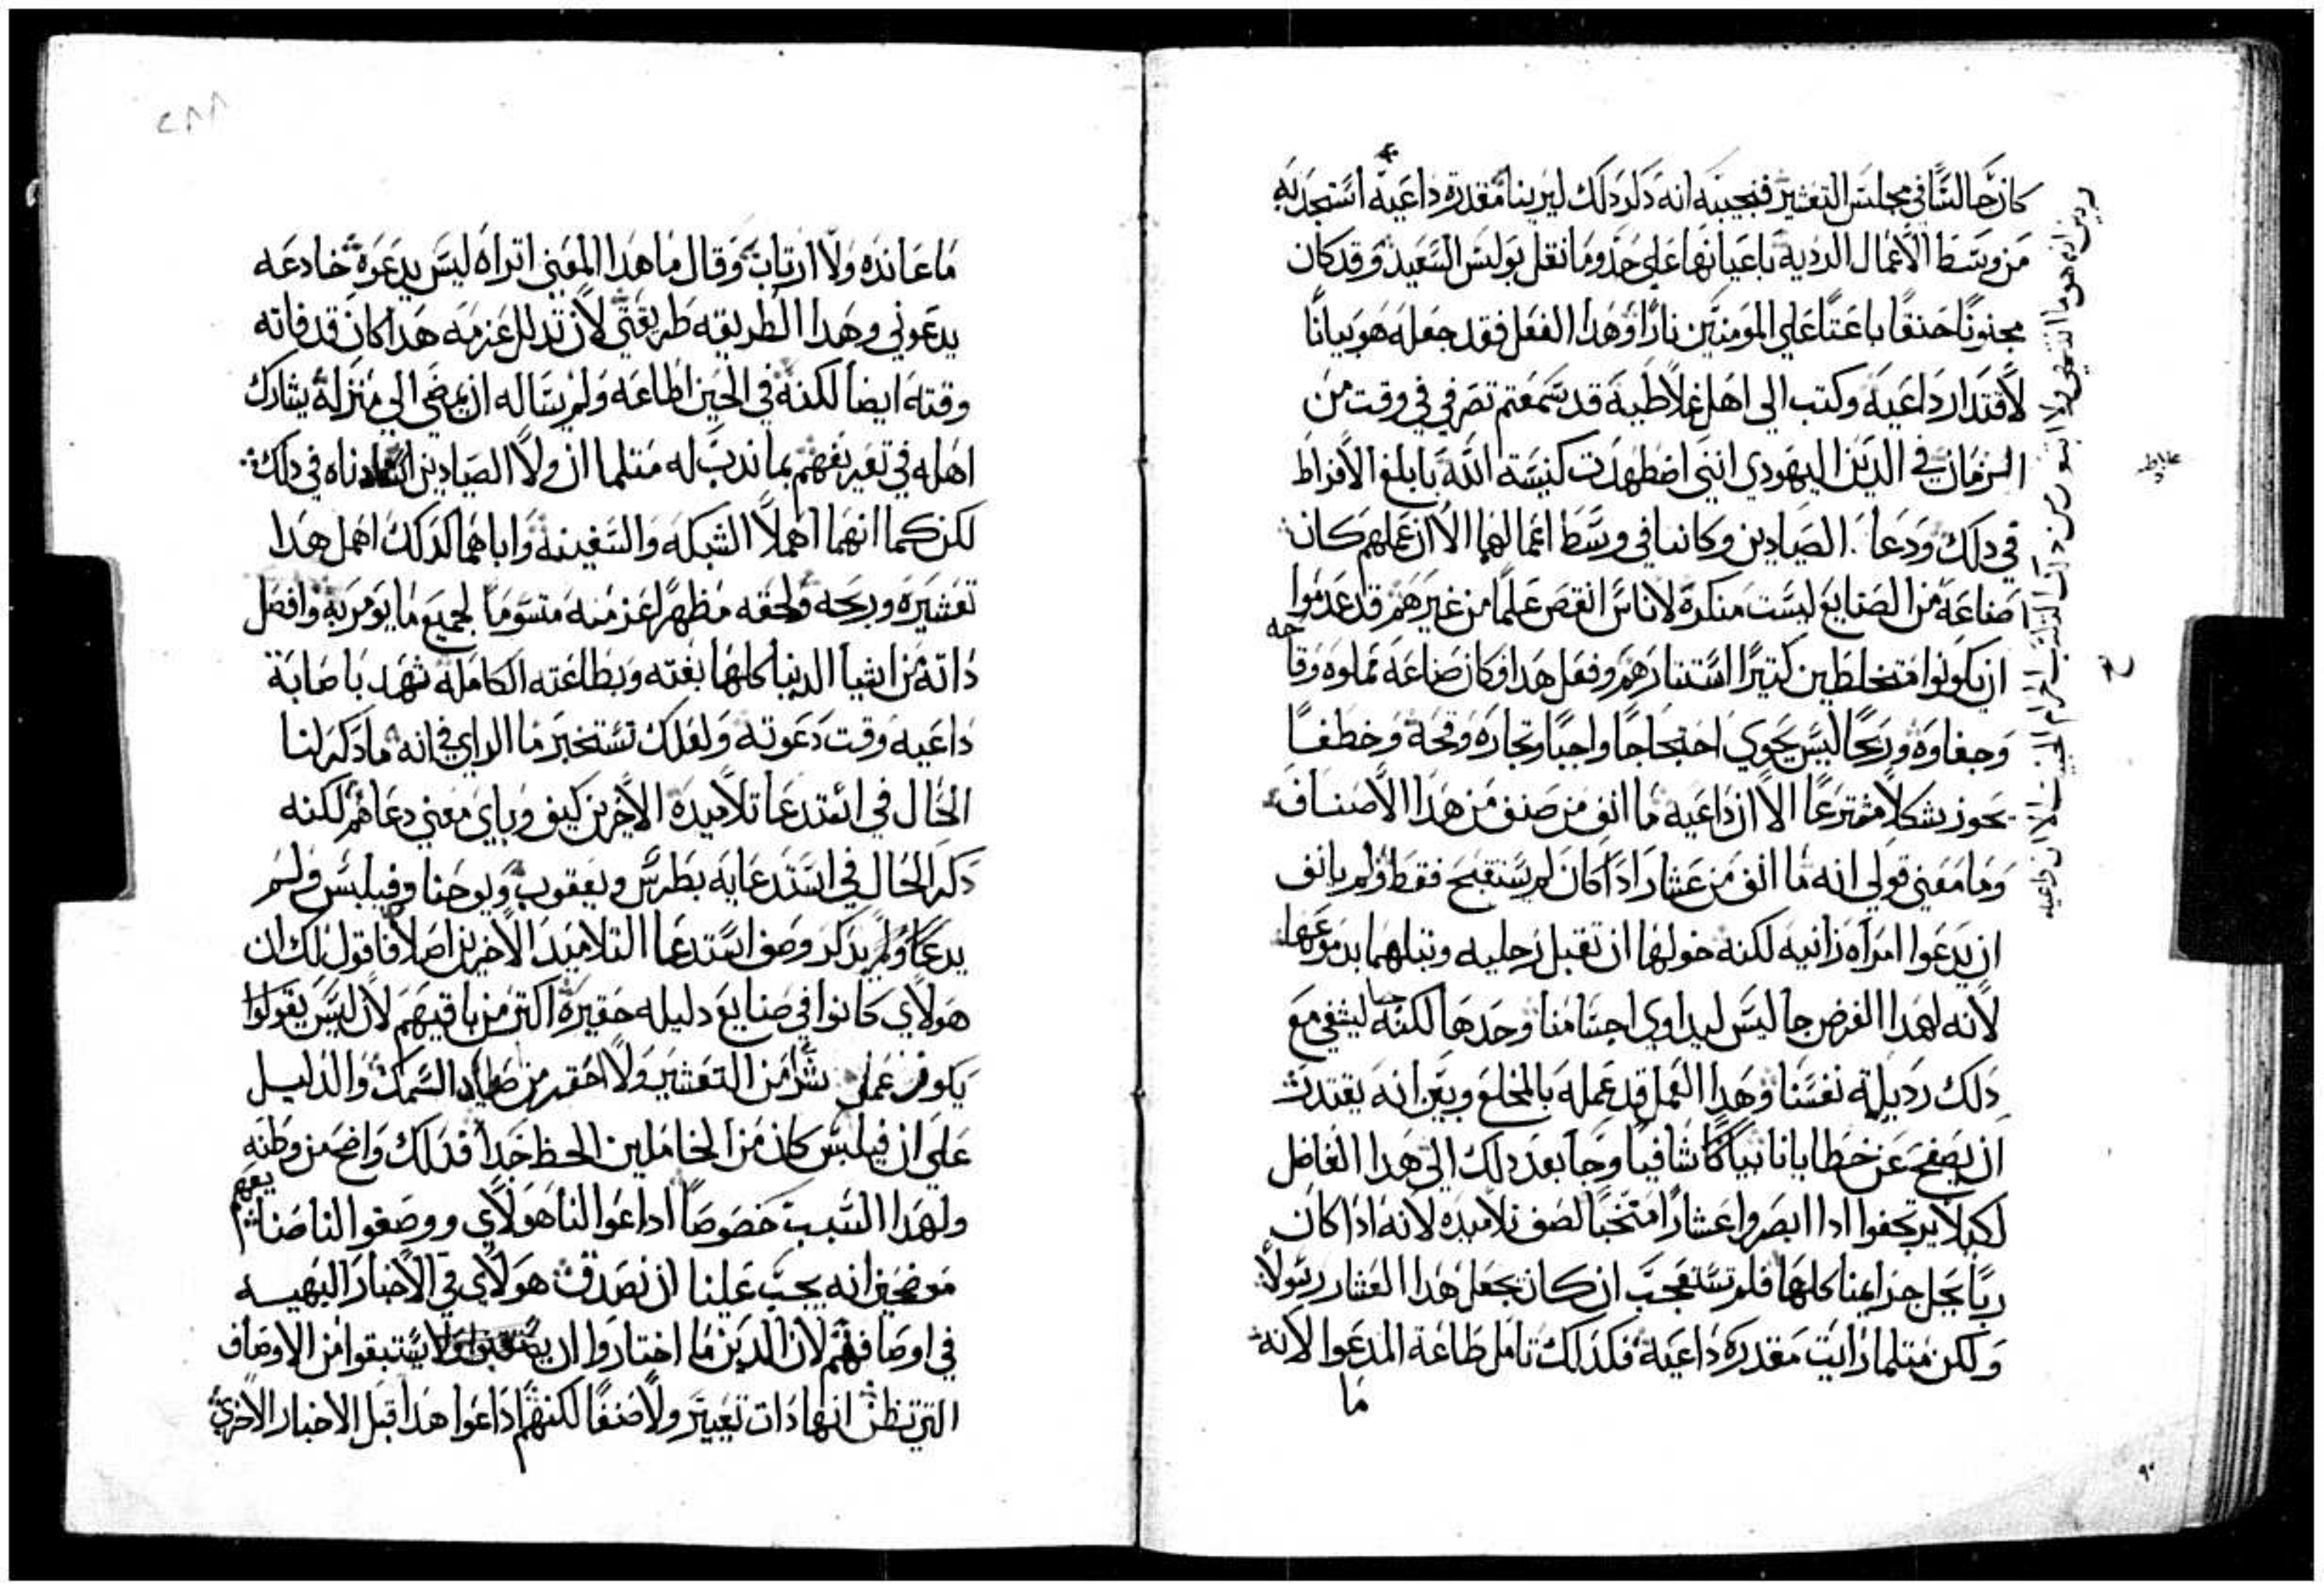 كان جالسًا في مجلس التعشير فنجيبه انه ذكر ذلك ليرينا مقدرة داعيه استجذبه
من وسط الاعمال الرديه باعيانها على حذو ما نقل بولس السعيد وقد كان
مجنونًا حنقًا باعثًا على المومنين نارًا وهذا الفعل فقد جعله هو بيانًا
لاقتدار داعيه وكتب الى اهل غلاطيه قد سمعتم تصرفي في وقت من
الزمان في الدين اليهودي انني اضطهدت كنيسة الله بابلغ الافراط
في ذلك ودعا الصيادين وكانا في وسط اعمالهما الا ان عملهم كان
صناعة من الصنايع ليست منكرة لاناس انقص علمًا من غيرهم قد عدموا
ان يكونوا متخلطين كثيرًا استتارهم وفعل هذا فكان صناعة مملوه وقاحه
وجفاوه وربحًا ليس يحوي احتجاجًا واجبًا وتجاره وقحة وخطفًا
يحوز بشكلًا مخترعًا الا ان داعيه ما انف من صنف من هذا الاصناف
وما معنى قولي انه ما انف من عشار اذا كان لم يستقبح فقط ولم يانف
ان يدعوا امراه زانيه لكنه خولها ان تقبل رجليه وتبلهما بدموعها
لانه لهذا الغرض جا ليس ليداوي اجسامنا وحدها لكنه ليشفي مع
ذلك رذيلة نفسنا وهذا العمل قد عمله بالمخلع وبين انه يقتدر
ان يصفح عن خطايانا بيانًا شافيًا وجا بعد ذلك الى هذا الفاضل
لكيلا يرتجفوا اذا ابصروا عشارًا منتخبًا لصف تلاميذه لانه اذا كان
ربًا يحل جرايمنا كلها فلم تستعجب ان كان يجعل هذا العشار رسولًا
ولكن مثلما رايت مقدرة داعيه فكذلك تامل طاعة المدعوا لانه
ما
ما عانده ولا ارتاب وقال ما هذا المعنى اتراه ليس بدعوة خادعه
يدعوني وهذا الطريقه طريقتي لان تذلل عزمه هذا كان قد فاته
وقته ايضًا لكنه في الحين اطاعه ولم يساله ان يمضي الى منزله يشارك
اهله في تعريفهم بما ندب له مثلما ان ولا الصيادين في ذلك
لكن كما انهما اهملا الشبكه والسفينه واباهما كذلك اهمل هذا
تعشيره وربحه ولحقه مظهرًا عزمه متسومًا لجميع ما يومر به وافصل
ذاته من اشيا الدنيا كلها بغته وبطاعته الكامله شهد باصابة
داعيه وقت دعوته ولعلك تستخبر ما الراي في انه ما ذكر لنا
الحال في استدعا تلاميذه الاخرين كيف وباي معنى دعاهم لكنه
ذكر الحال في استدعايه بطرس ويعقوب ويوحنا وفيلبس ولم
يدعا ولم يذكر وصف استدعا التلاميذ الاخرين اصلًا فاقول لك ان
هولاي كانوا في صنايع ذليله حقيرة اكثر من باقيهم لان ليس يقولوا
يكون عملًا شرًا من التعشير ولا احقر من صياد السمك والدليل
على ان فيلبس كان من الخاملين الحظ جدًا فذلك واضح من وطنه
ولهذا السبب خصوصًا اذاعوا لنا هولاي ووصفوا لنا صنايعهم
موضحين انه يجب علينا ان نصدق هولاي في الاخبار البهيه
في اوصافهم لان الذين ما اختاروا ان يستبقوا من الاوصاف
التي تظن انها ذات تعيير ولا صنفًا لكنهم اذاعوا هذا قبل الاخبار الاخرى